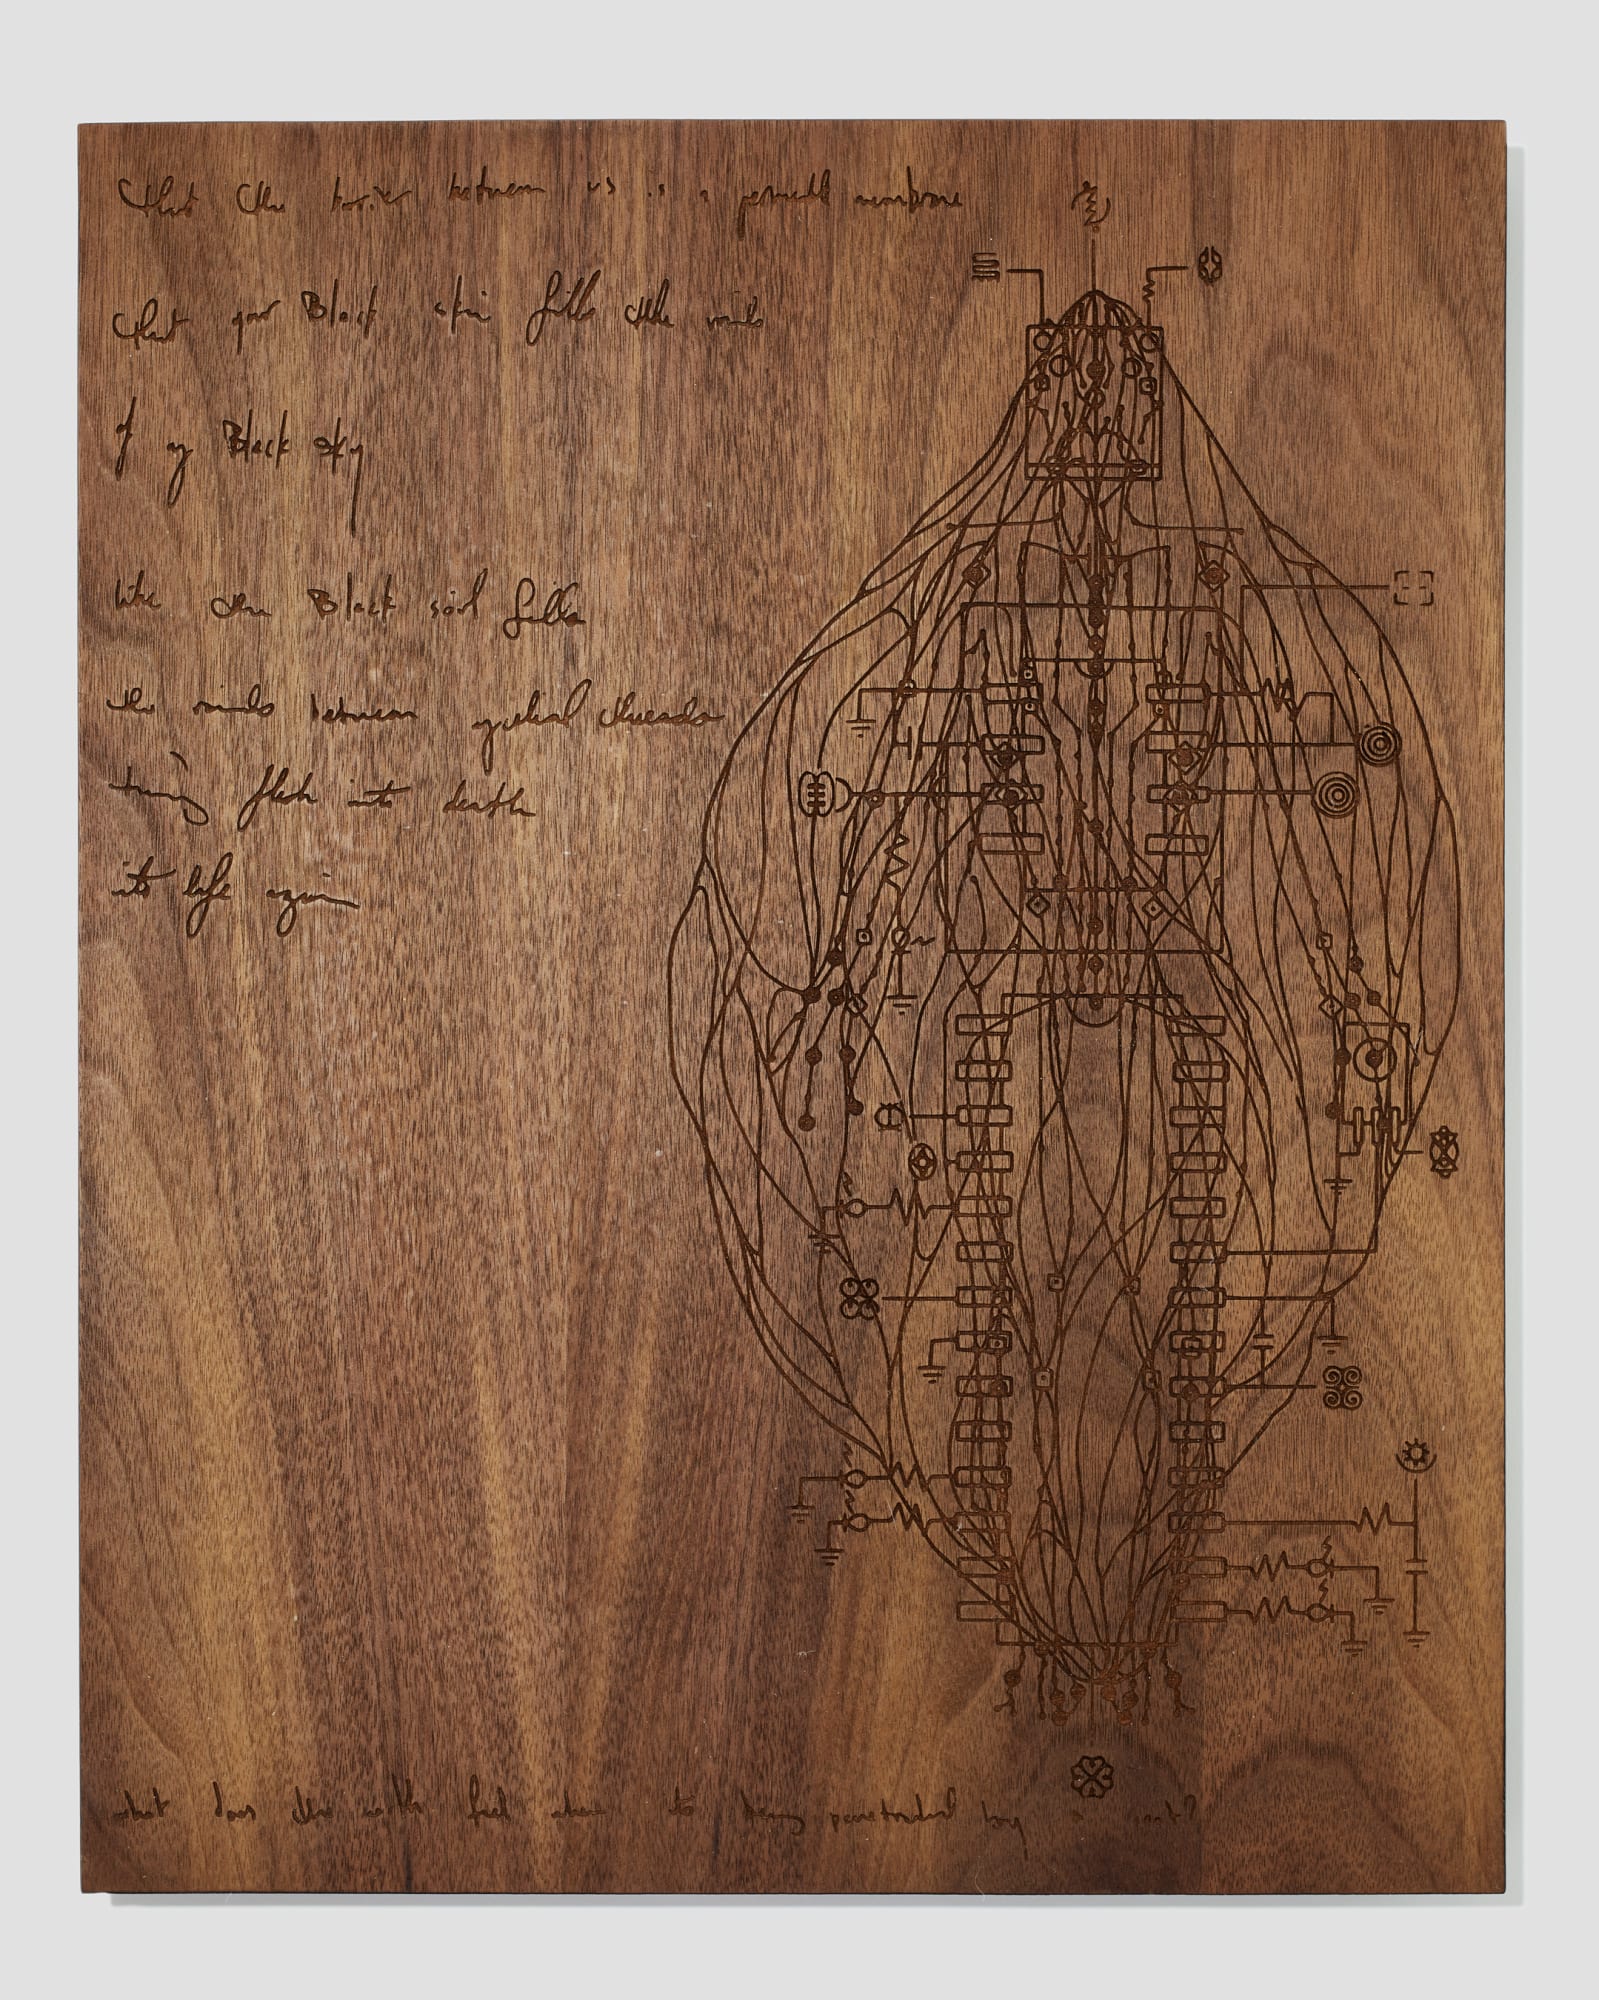 that the barrier between us is a permeable membrane
that your Black skin fills the voids
of my Black sky
like the Black soil fills
the voids between mycelial threads
turning flesh into death
into life again
what does the earth feel when its being penetrated by a root?